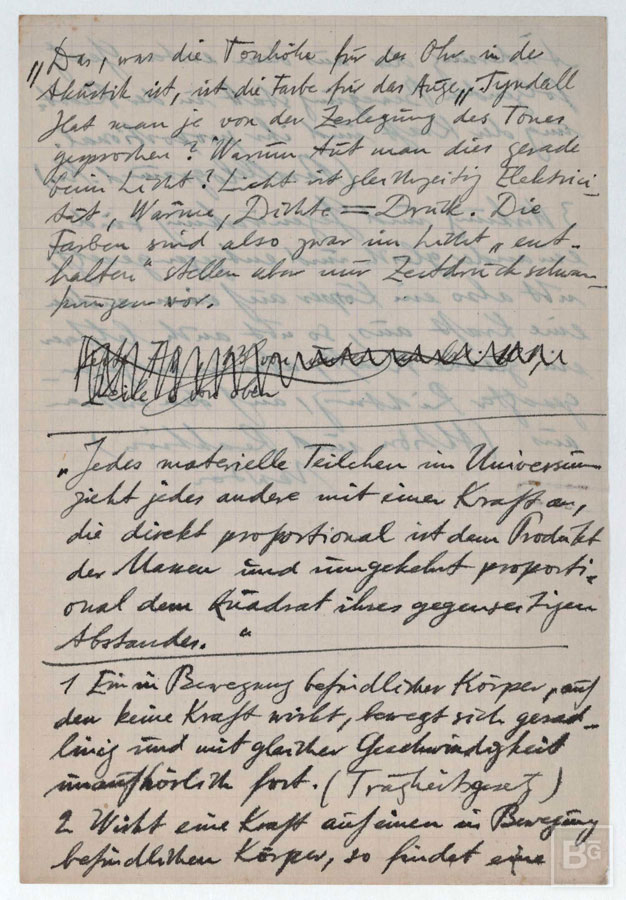 „Das, was die Tonhöhe für das Ohr in der
Akustik ist, ist die Farbe für das Auge„ Tyndall
Hat man je von der Zerlegung des Tones
gesprochen? Warum tut man dies gerade
beim Licht? Licht ist gleichzeitig Elektrici-
tät, Wärme, Dichte = Druck. Die
Farben sind also zwar im Licht „ent-
halten“ stellen aber nur Zeitdruckschwan-
kungen vor.
von oben
„Jedes materielle Teilchen im Universum
zieht jedes andere mit einer Kraft an,
die direkt proportional ist dem Produkt
der Massen und umgekehrt proporti-
onal dem Quadrat ihres gegenseitigen
Abstandes.“
1 Ein in Bewegung befindlicher Körper, auf
den keine Kraft wirkt, bewegt sich gerad-
linig und mit gleicher Geschwindigkeit
unaufhörlich fort. (Trägheitsgesetz)
2 Wirkt eine Kraft auf einen in Bewegung
befindlichen Körper, so findet eine
BG